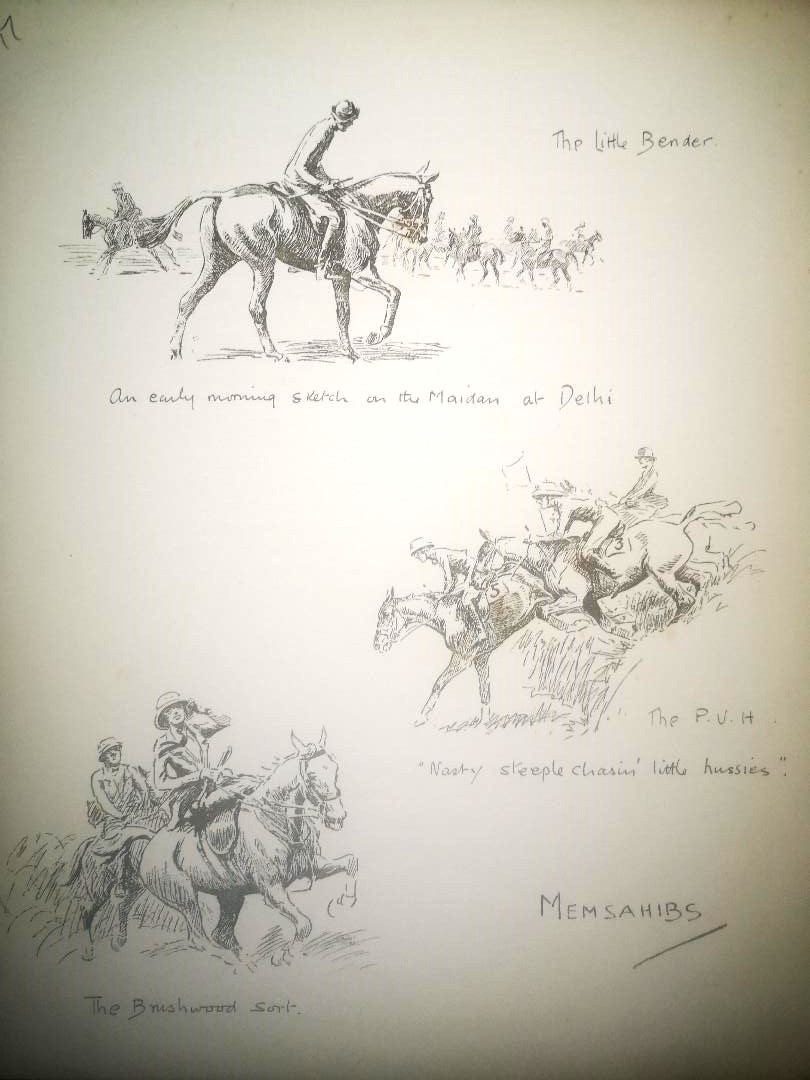 The Little Bender.
An early morning sketch on the Maidan at Delhi
3
3
The P.V.H.
"Nasty steeple chasin' little hussies".
MEMSAHIBS
The Brushwood sort.